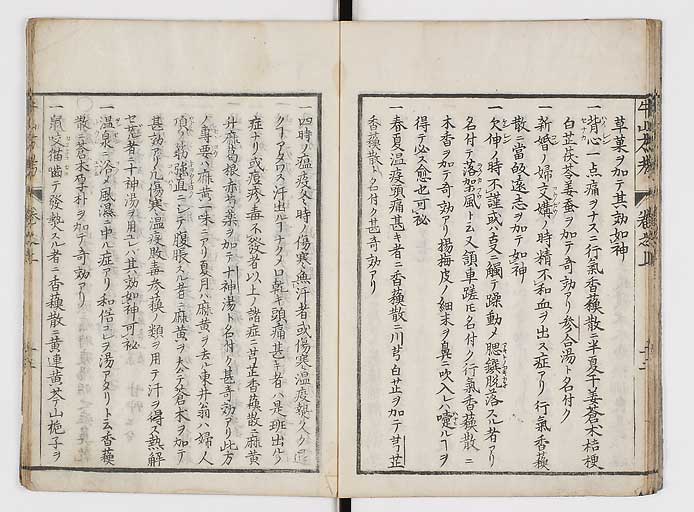 草菓ヲ加テ其効如神
一背心一点痛ヲナスニ行氣香蘓散ニ半夏干姜蒼木桔梗
白芷茯苓姜蚕ヲ加テ奇効アリ参合湯ト名付ク
一新婚ノ婦交媾ノ時精不和血ヲ出ス症アリ行氣香蘓
散ニ當皈遠志ヲ加テ如神
一欠伸ノ時不謹或ハ支ニ觸テ躁動メ腮鑚脱落スル者アリ
名付テ落架風ト云又頷車蹉モ名付ク行氣香蘓散ニ
木香ヲ加テ奇効アリ揚梅皮ノ細末ヲ鼻ニ吹入レハ嚏ルヿヲ
得テ必ス愈也可秘
一春夏温疫頭痛甚キ者ニ香蘓散ニ川芎白芷ヲ加テ芎芷
香蘓散ト名付ク甚奇効アリ
一四時ノ瘟疫冬時ノ傷寒無汗者或傷寒温疫
クアタワス汗出ルヿナク口乾キ頭痛甚キ者ハ是班出ルノ
症ナリ或痘疹毒不発者以上ノ諸症ニ芎芷香蘓散ニ麻黄
升麻葛根赤芍薬ヲ加テ十神湯ト名付ク甚奇効アリ此方
ノ專要ハ麻黄一味ニアリ夏月ハ麻黄ヲ去ル東井翁ハ婦人
項ノ筋強直ニシテ腹脹スル者ニ麻黄ヲ去テ蒼木ヲ加テ
甚効アリ凡傷寒温疫敗毒参蘓ノ類ヲ用テ汗ヲ得ス熱解
セサル者ニ十神湯ヲ用ユレハ其効如神可秘
一温泉ニ浴メ風濕ニ中ル症アリ和俗コレヲ湯アタリト云香蘓
散ニ蒼木厚朴ヲ加テ奇効アリ
一鼠咬猫噛テ發熱スル者ニ香蘓散ニ黄連黄芩山梔子ヲ